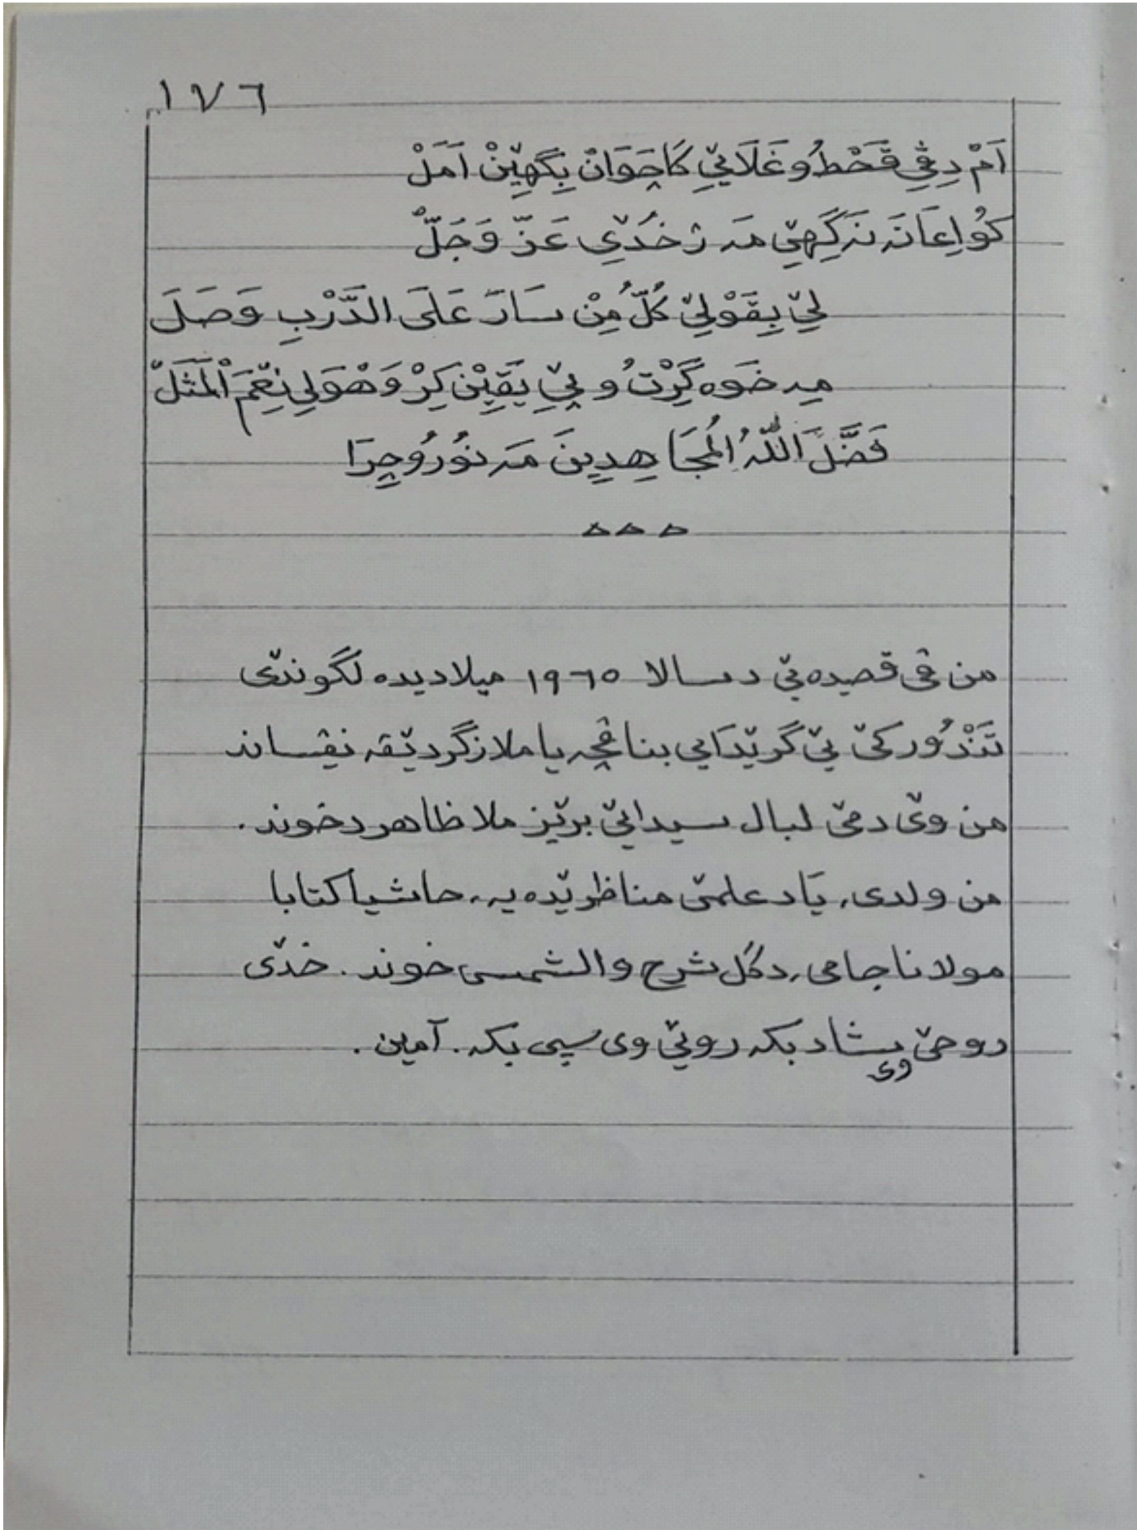 ١٧٦
اَمْ دِڤِي قَحْطُ و غَلَايێِ كَا چَوَانْ بِگهِێِنْ اَمَلْ
كُو اِعَانَه نَه گِهێِ مَه ژ خُدێِ عَزّ وَجَلّْ
لێِ بِقَوْلێِ كُلُّ مِنْ سَارَ عَلَى الدَّرْبِ وَصَلَ
مِه خَوه گِرْتُ و پێِ يَقِينْ كِرْ وَهْوَلِي نِعْمَ الْمَثَلْ
فَضَّلَ اللّٰهُ الْمُجَاهِدِينَ مَه نُورُ و چِرَا
ﻫ ﻫ ﻫ
من ڤى قصيده يێ د سالا ١٩٦٥ ميلاديده لگوندێ
تَنْدُوركێ يێ گرێدايى بناڤچه يا ملازگردێڤه نڤيساند
من وێ دمێ لبال سيدايێ برێز ملا ظاهر دخوند.
من ولدى، يَا د علمێ مناظرێده يه، حاشيا كتابا
مولانا جامى، دگَل شرح والشمسى خوند. خدێ
روحێ وى شاد بكه رويێ وى سپى بكه. آمين.